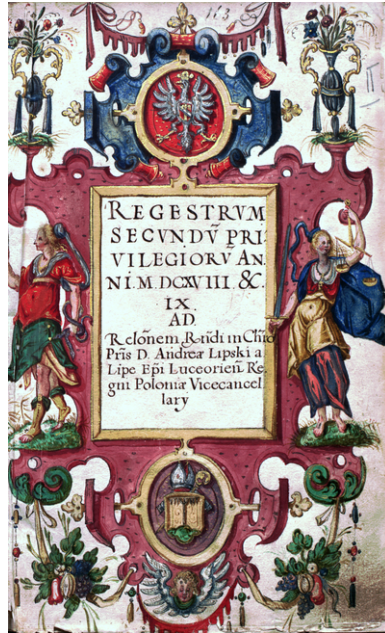 113
REGESTRVM
SECVNDṼ PRI
VILEGIORṼ AN,
NI. M. DCXVIII. &C.
IX.
AD.
Relõnem Rṇ̃di in Chr̃o
Pr̃is D. Andreæ Lipski a
Lipe Ep̃i Luceorien̄. Re,
gni Poloniæ Vicecancel
lary